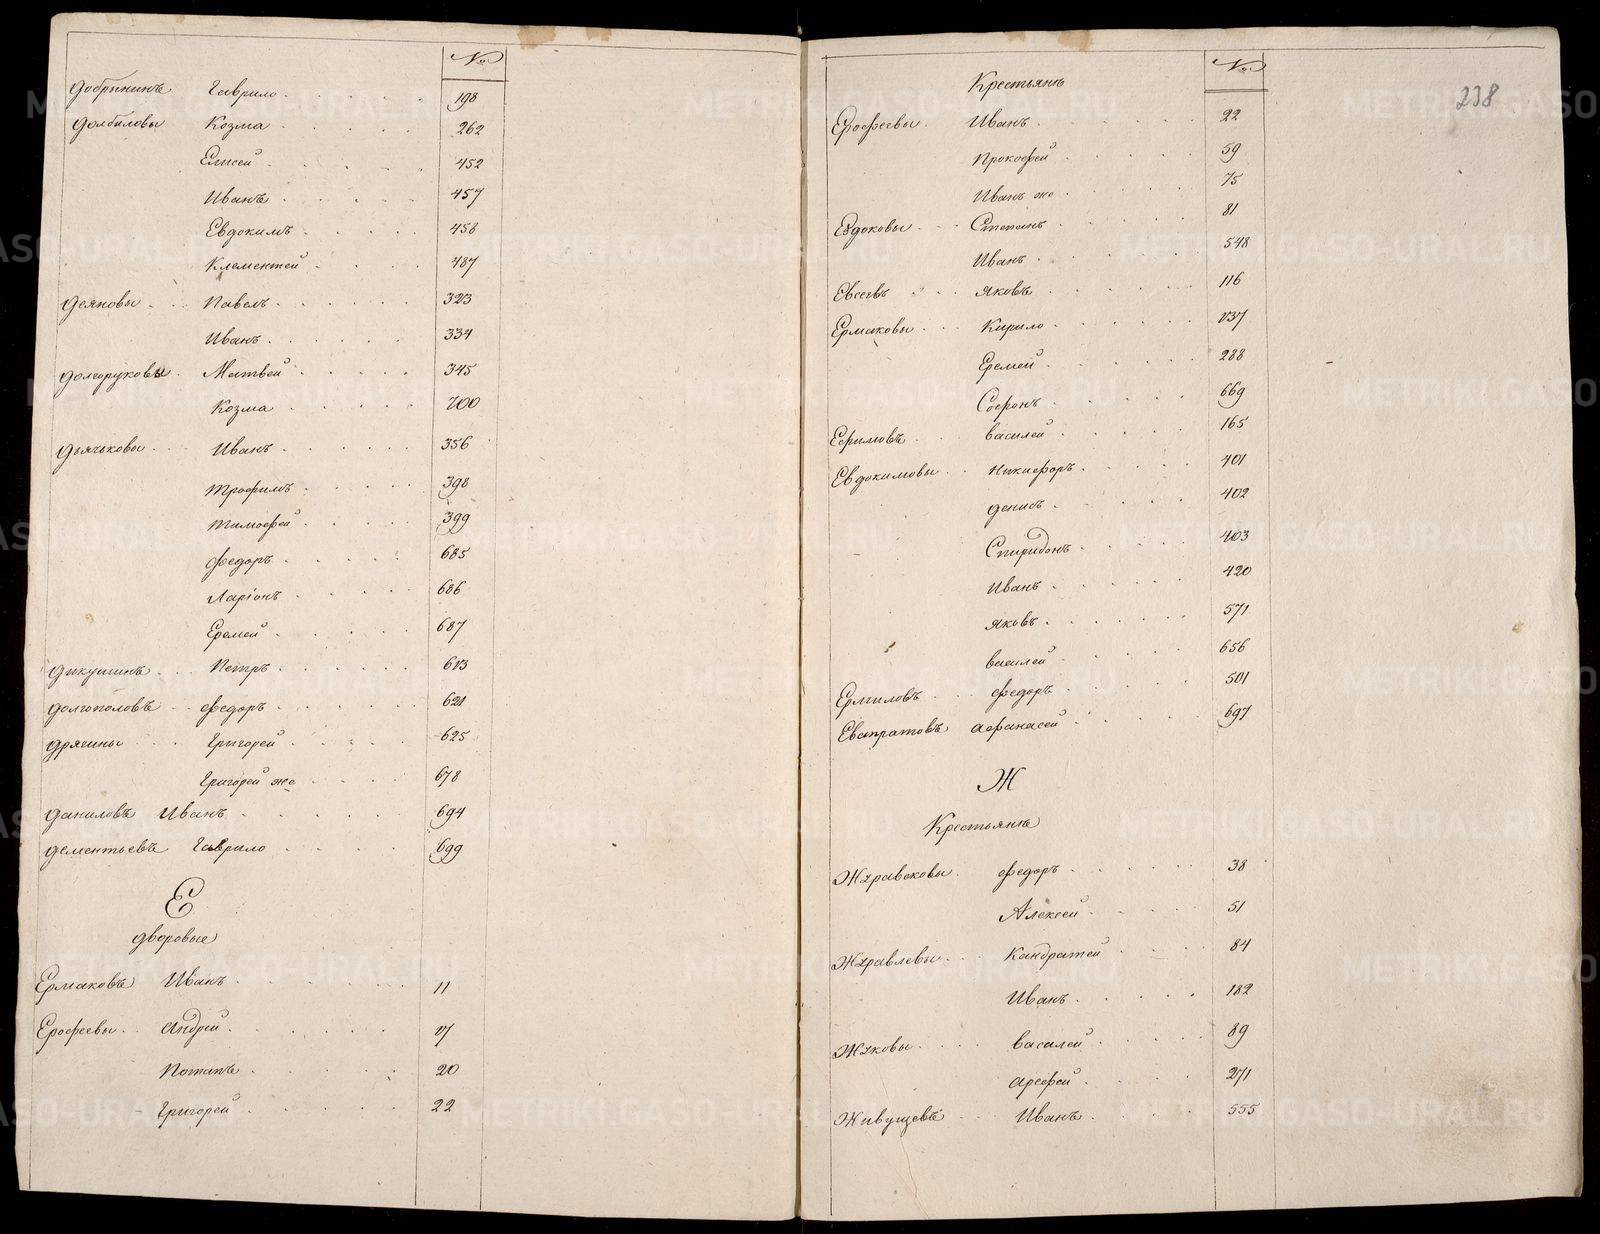 №
Добрынинъ Гаврило 198
Долбиловы Козма 262
Елисей 452
Иванъ 457
Евдокимъ 458
Клементей 487
Деяновы Павелъ 323
Иванъ 334
Долгоруковы Матвей 345
Козма 700
Дьячковы Иванъ 356
Трофимъ 398
Тимофей 399
Федоръ 685
Ларіонъ 686
Еремей 687
Дикушинъ Петръ 613
Долгополовъ Федоръ 621
Дрягины Григорей 625
Григорей же 678
Даниловъ Иванъ 694
Дементьевъ Гаврило 699
Е
Дворовые
Ермаковъ Иванъ 11
Ерофеевы Андрей 17
Потапъ 20
Григорей 22
№
238
Крестьянъ
Ерофеевы Иванъ 22
Прокофей 59
Иванъ же 75
Евдоковы Степанъ 81
Иванъ 548
Евсеевъ Яковъ 116
Ермаковы Кирило 137
Еремей 288
Софронъ 669
Ефимовъ Василей 165
Евдокимовы Никифоръ 401
Денисъ 402
Спиридонъ 403
Иванъ 420
Яковъ 571
Василей 656
Ермиловъ Федоръ 501
Евстратовъ Афанасей 697
Ж
Крестьянъ
Журавковы Федоръ 38
Алексей 51
Журавлевы Кандратей 84
Иванъ 182
Жуковы Василей 89
Арефей 271
Живущевъ Иванъ 555
METRIKI.GASO-URAL.RU